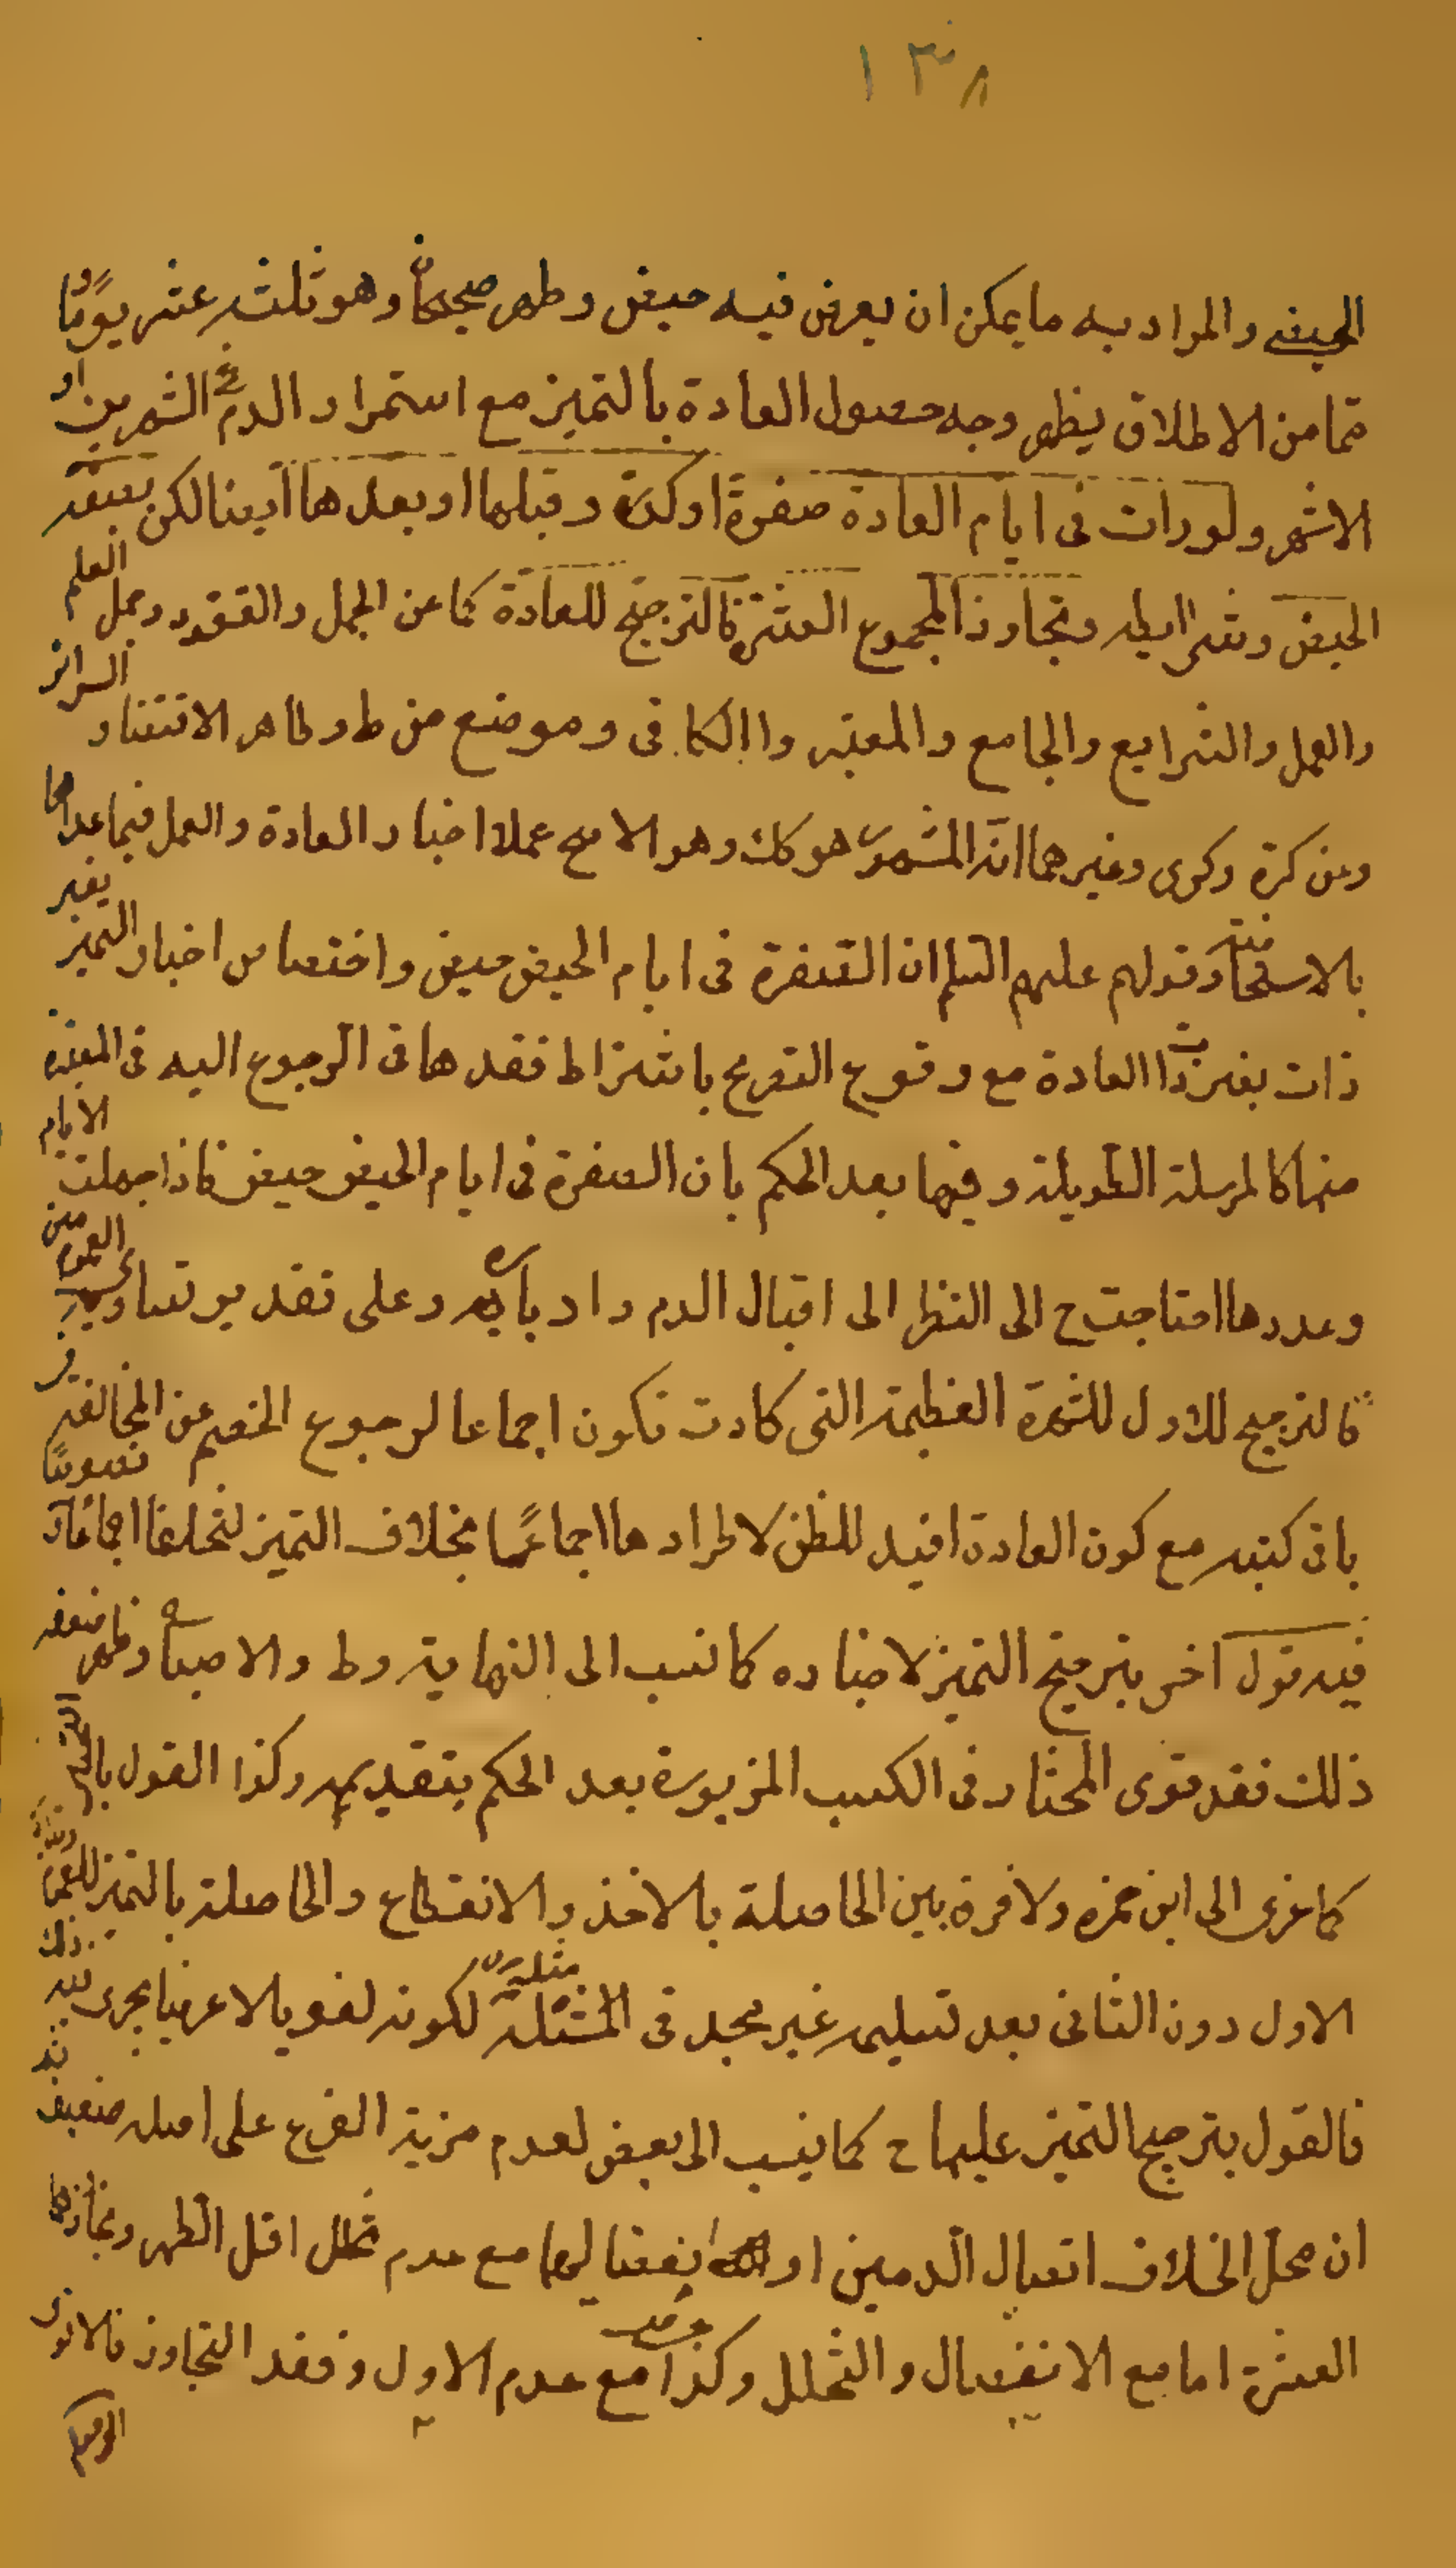 ١٣٨
الحيض والمراد به ما يمكن ان يعرض فيه حيض وطهر صحيحان وهو ثلثه عشر يومًا و
تما من الاطلاق يظهر وجه حصول العادة بالتميز مع استمرار الدم في الشهرين او
الاشهر ولو رات فى ايام العادة صفرةً او كدرة وقبلها او بعدها اربنا لكن بصفة
الحيض وشرائطه وتجاوز المجموع العشرة فالترجيح للعادة كما عن الجمل والعقود وجمل العلم
والعمل والشرايع والجامع والمعتبر والكافى وموضع من ط وظاهر الاقتصاد السرائر
وعن كرة وكرى وغيرهما انه المشهور هو كك وهو الاصح عملا اخبار العادة والعمل فيما عداها
بالاستحاضة وقولهم عليهم السلم ان الصفرة فى ايام الحيض حيض واختصاص اخبار التميز بغير
ذات العادة مع وقوع التصريح باشتراط فقدها فى الرجوع اليه فى المعتبرة
منها كالمرسلة الطويلة وفيها بعد الحكم بان الصفرة فى ايام الحيض حيض فاذا جهلت الايام
وعددها احتاجت ح الى النظر الى اقبال الدم وادباره وعلى تقدير تساوى العموم من
فالترجيح للاول للشهرة العظيمة التى كادت تكون اجماعا لرجوع الخصم عن المخالفة فى
باقى كتبه مع كون العادة افيد للظن لاطرادها اجماعًا بخلاف التميز لتخلفها اجماعًا
فيه قول اخر بترجيح التميز لاخباره كما نسب الى النهاية وط والاصباح وظهر ضعفه
ذلك فقد قوى المختار فى الكتب المزبورة بعد الحكم بتقديمه وكذا القول بالتخيير
كما عزى الى ابن حمزه ولا فرق بين الحاصلة بالاخذ والانقطاع والحاصلة بالتميز للعموم
الاول دون الثانى بعد تسليمه غير مجد فى مثله لكونه لغويا لا عرفيا يجرى فيه ذلك
فالقول بترجيح التميز عليها ح كما ينسب الى بعض لعدم مزية الفرع على اصله ضعيف
ان محل الخلاف اتصال الدمين او انفصالهما مع عدم تخلل اقل الطهر وتجاوزهما
العشرة اما مع الانفصال والتخلل وكذا مع عدم الاول وفقد التجاوز فالاقوى